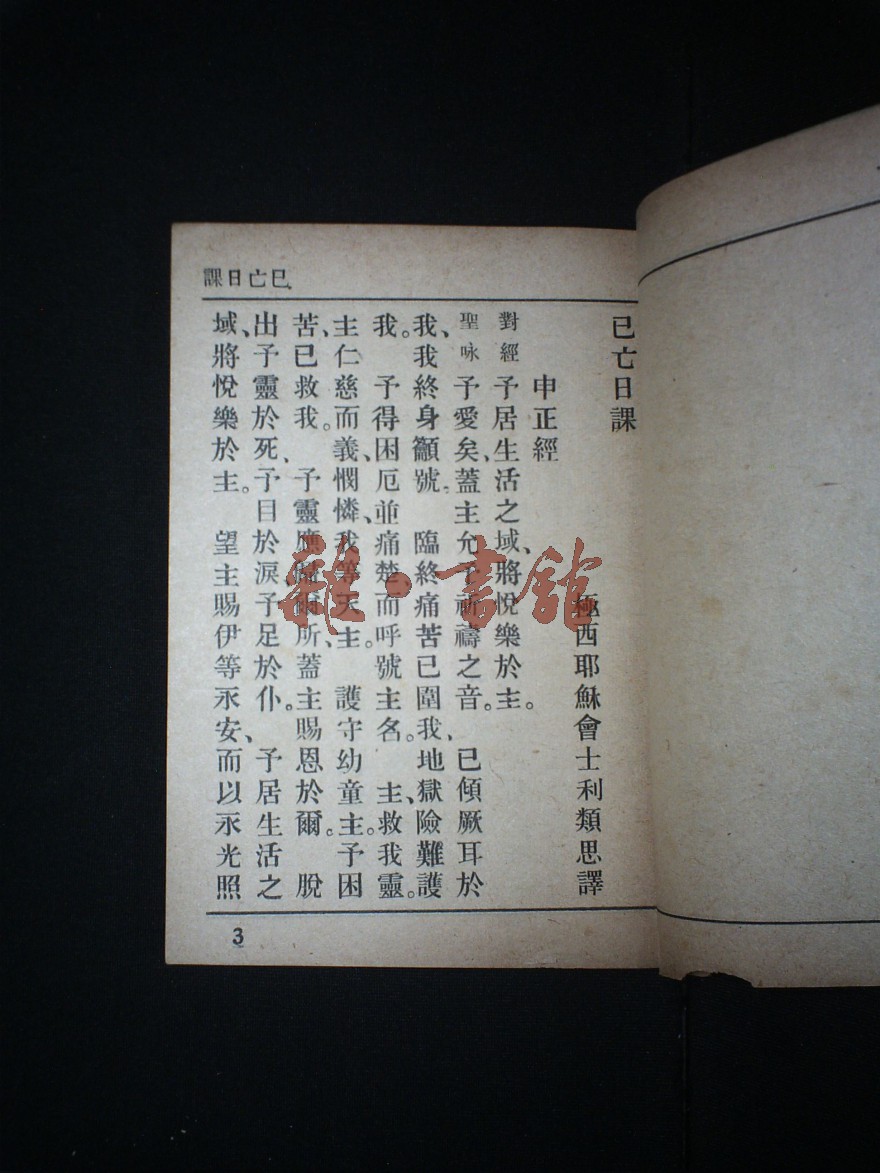 已亡日課
已亡日課
極西耶穌會士利類思譯
申正經
對經 予居生活之域、將悅樂於主。
聖咏 予愛矣、蓋主允予祈禱之音。 已傾厥耳於
我、我終身籲號。 臨終痛苦已圍我、地獄險難護
我。 予得困厄並痛楚而呼號主名。 主、救我靈。
主仁慈而義、憫憐、我等天主。 護守幼童主。予困
苦、已救我。 予靈應歸爾所、蓋主賜恩於爾。 脫
出予靈於死、予目於淚、予足於仆。 予居生活之
域、將悅樂於主。 望主賜伊等永安、而以永光照
3
雜·書館